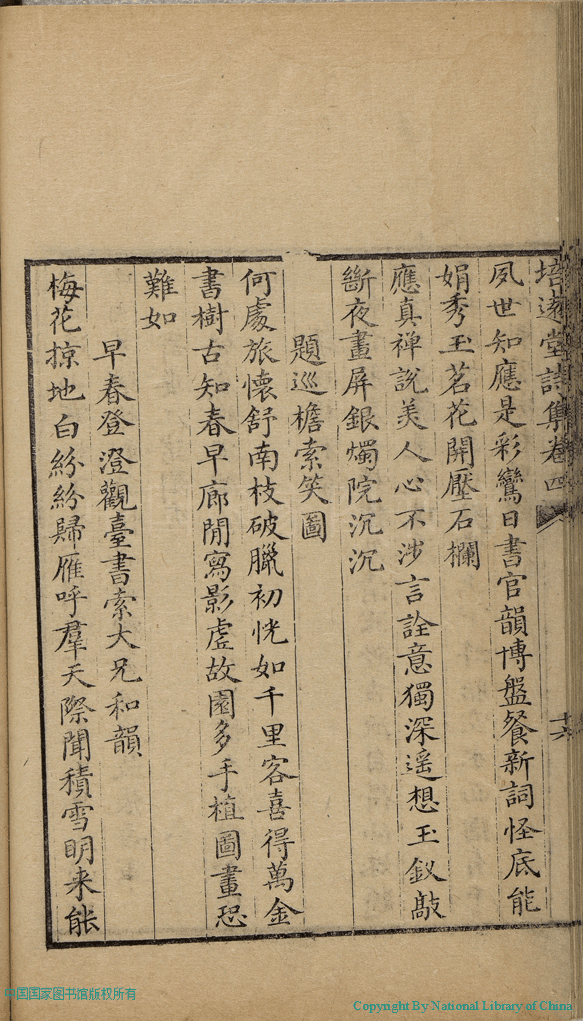 培遠堂詩集卷四
十六
夙世知應是彩鸞日書官韻博盤餐新詞怪底能
娟秀玉茗花開壓石欄
應真禅說美人心不涉言詮意獨深遥想玉釵敲
斷夜畫屏銀燭院沉沉
題巡檐索笑圖
何處旅懷舒南枝破臘初恍如千里客喜得萬金
書樹古知春早廊閒寫影虛故園多手植圖畫恐
難如
早春登澄觀臺書索大兄和韻
梅花掠地白紛紛歸雁呼羣天際聞積雪明来能
中国国家图书馆版权所有
Copyright By National Library of China